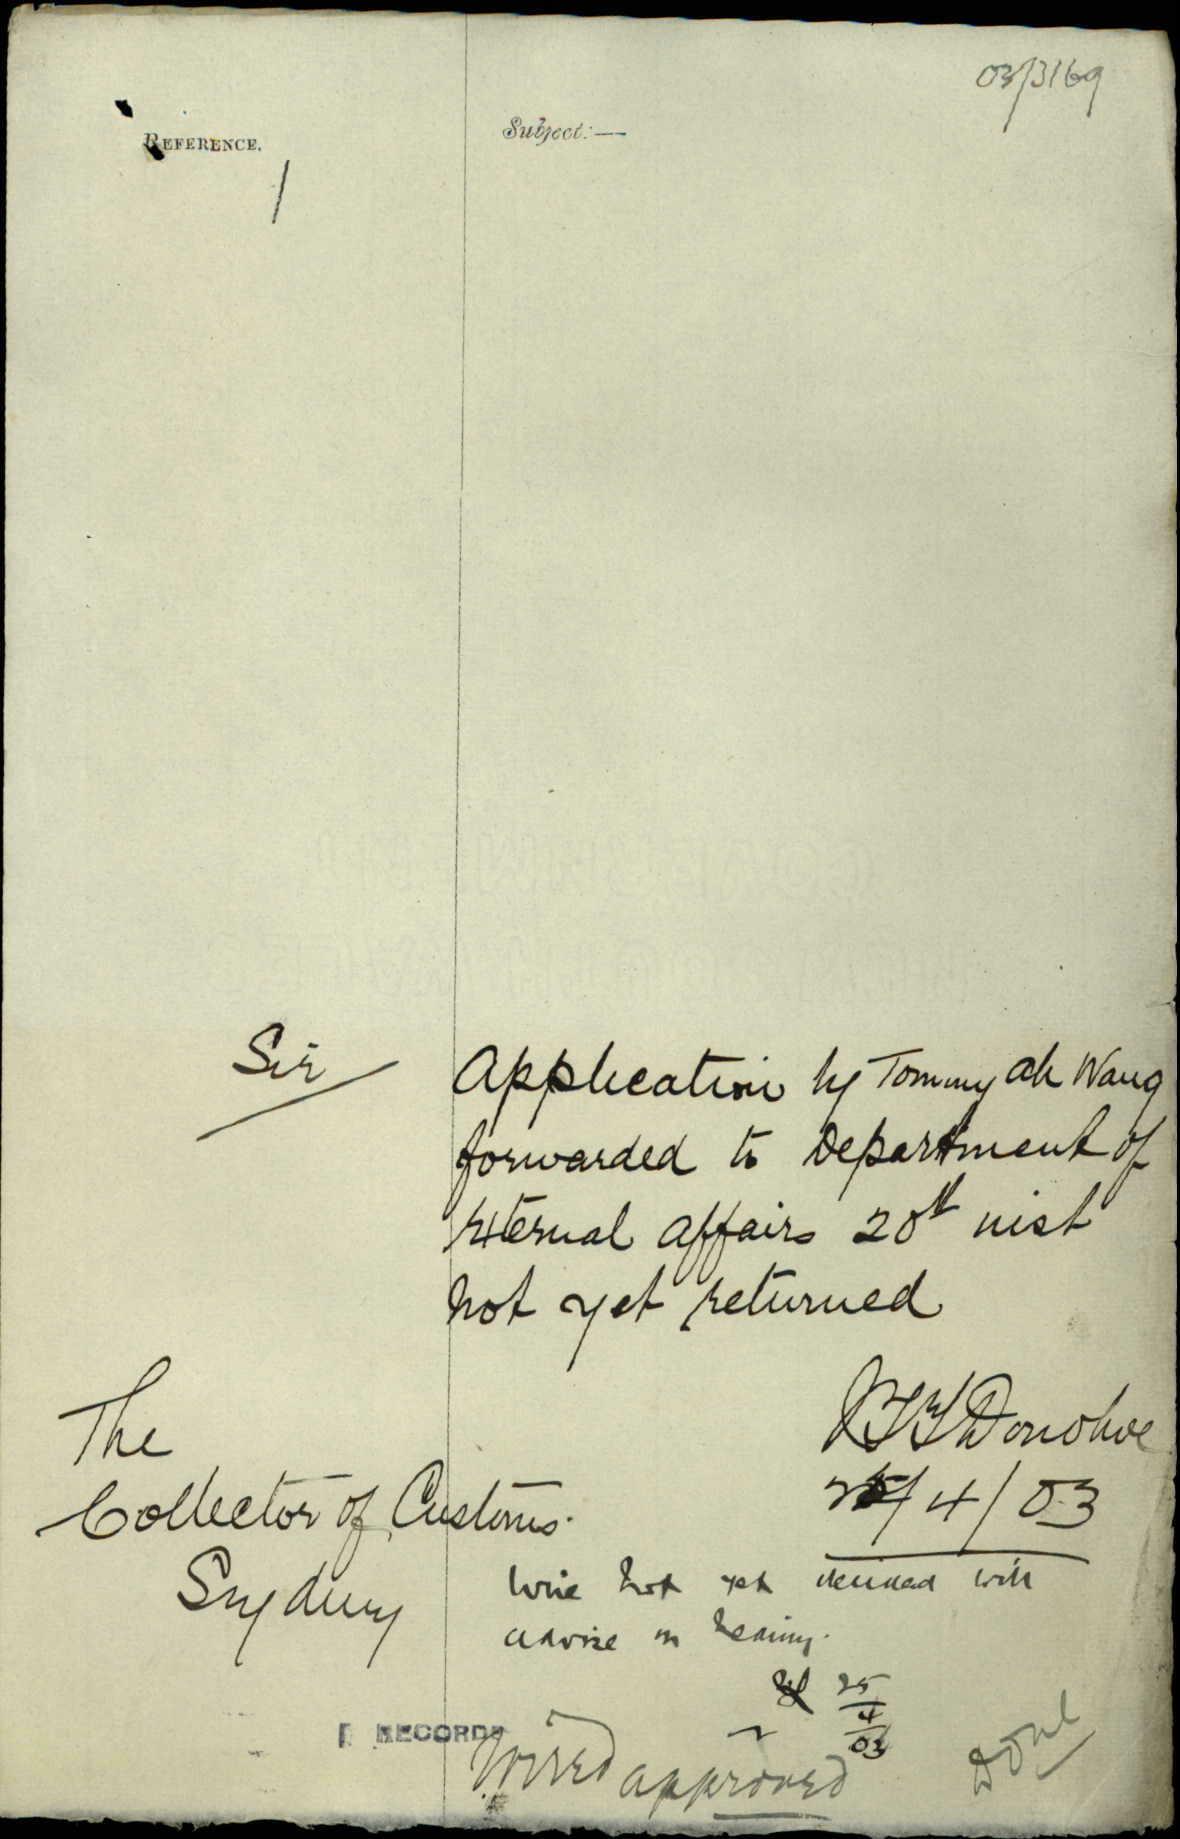 03/3169
REFERENCE.
Subject:—
1
Sir
Application by Tommy ah Wang
forwarded to Department of
External affairs 20th inst
not yet returned
JTT Donohoe
25/4/03
The
Collector of Customs.
Sydney
Wire not yet decided will
advise on hearing.
25
4
03
RECORDS
Wired approved
Done